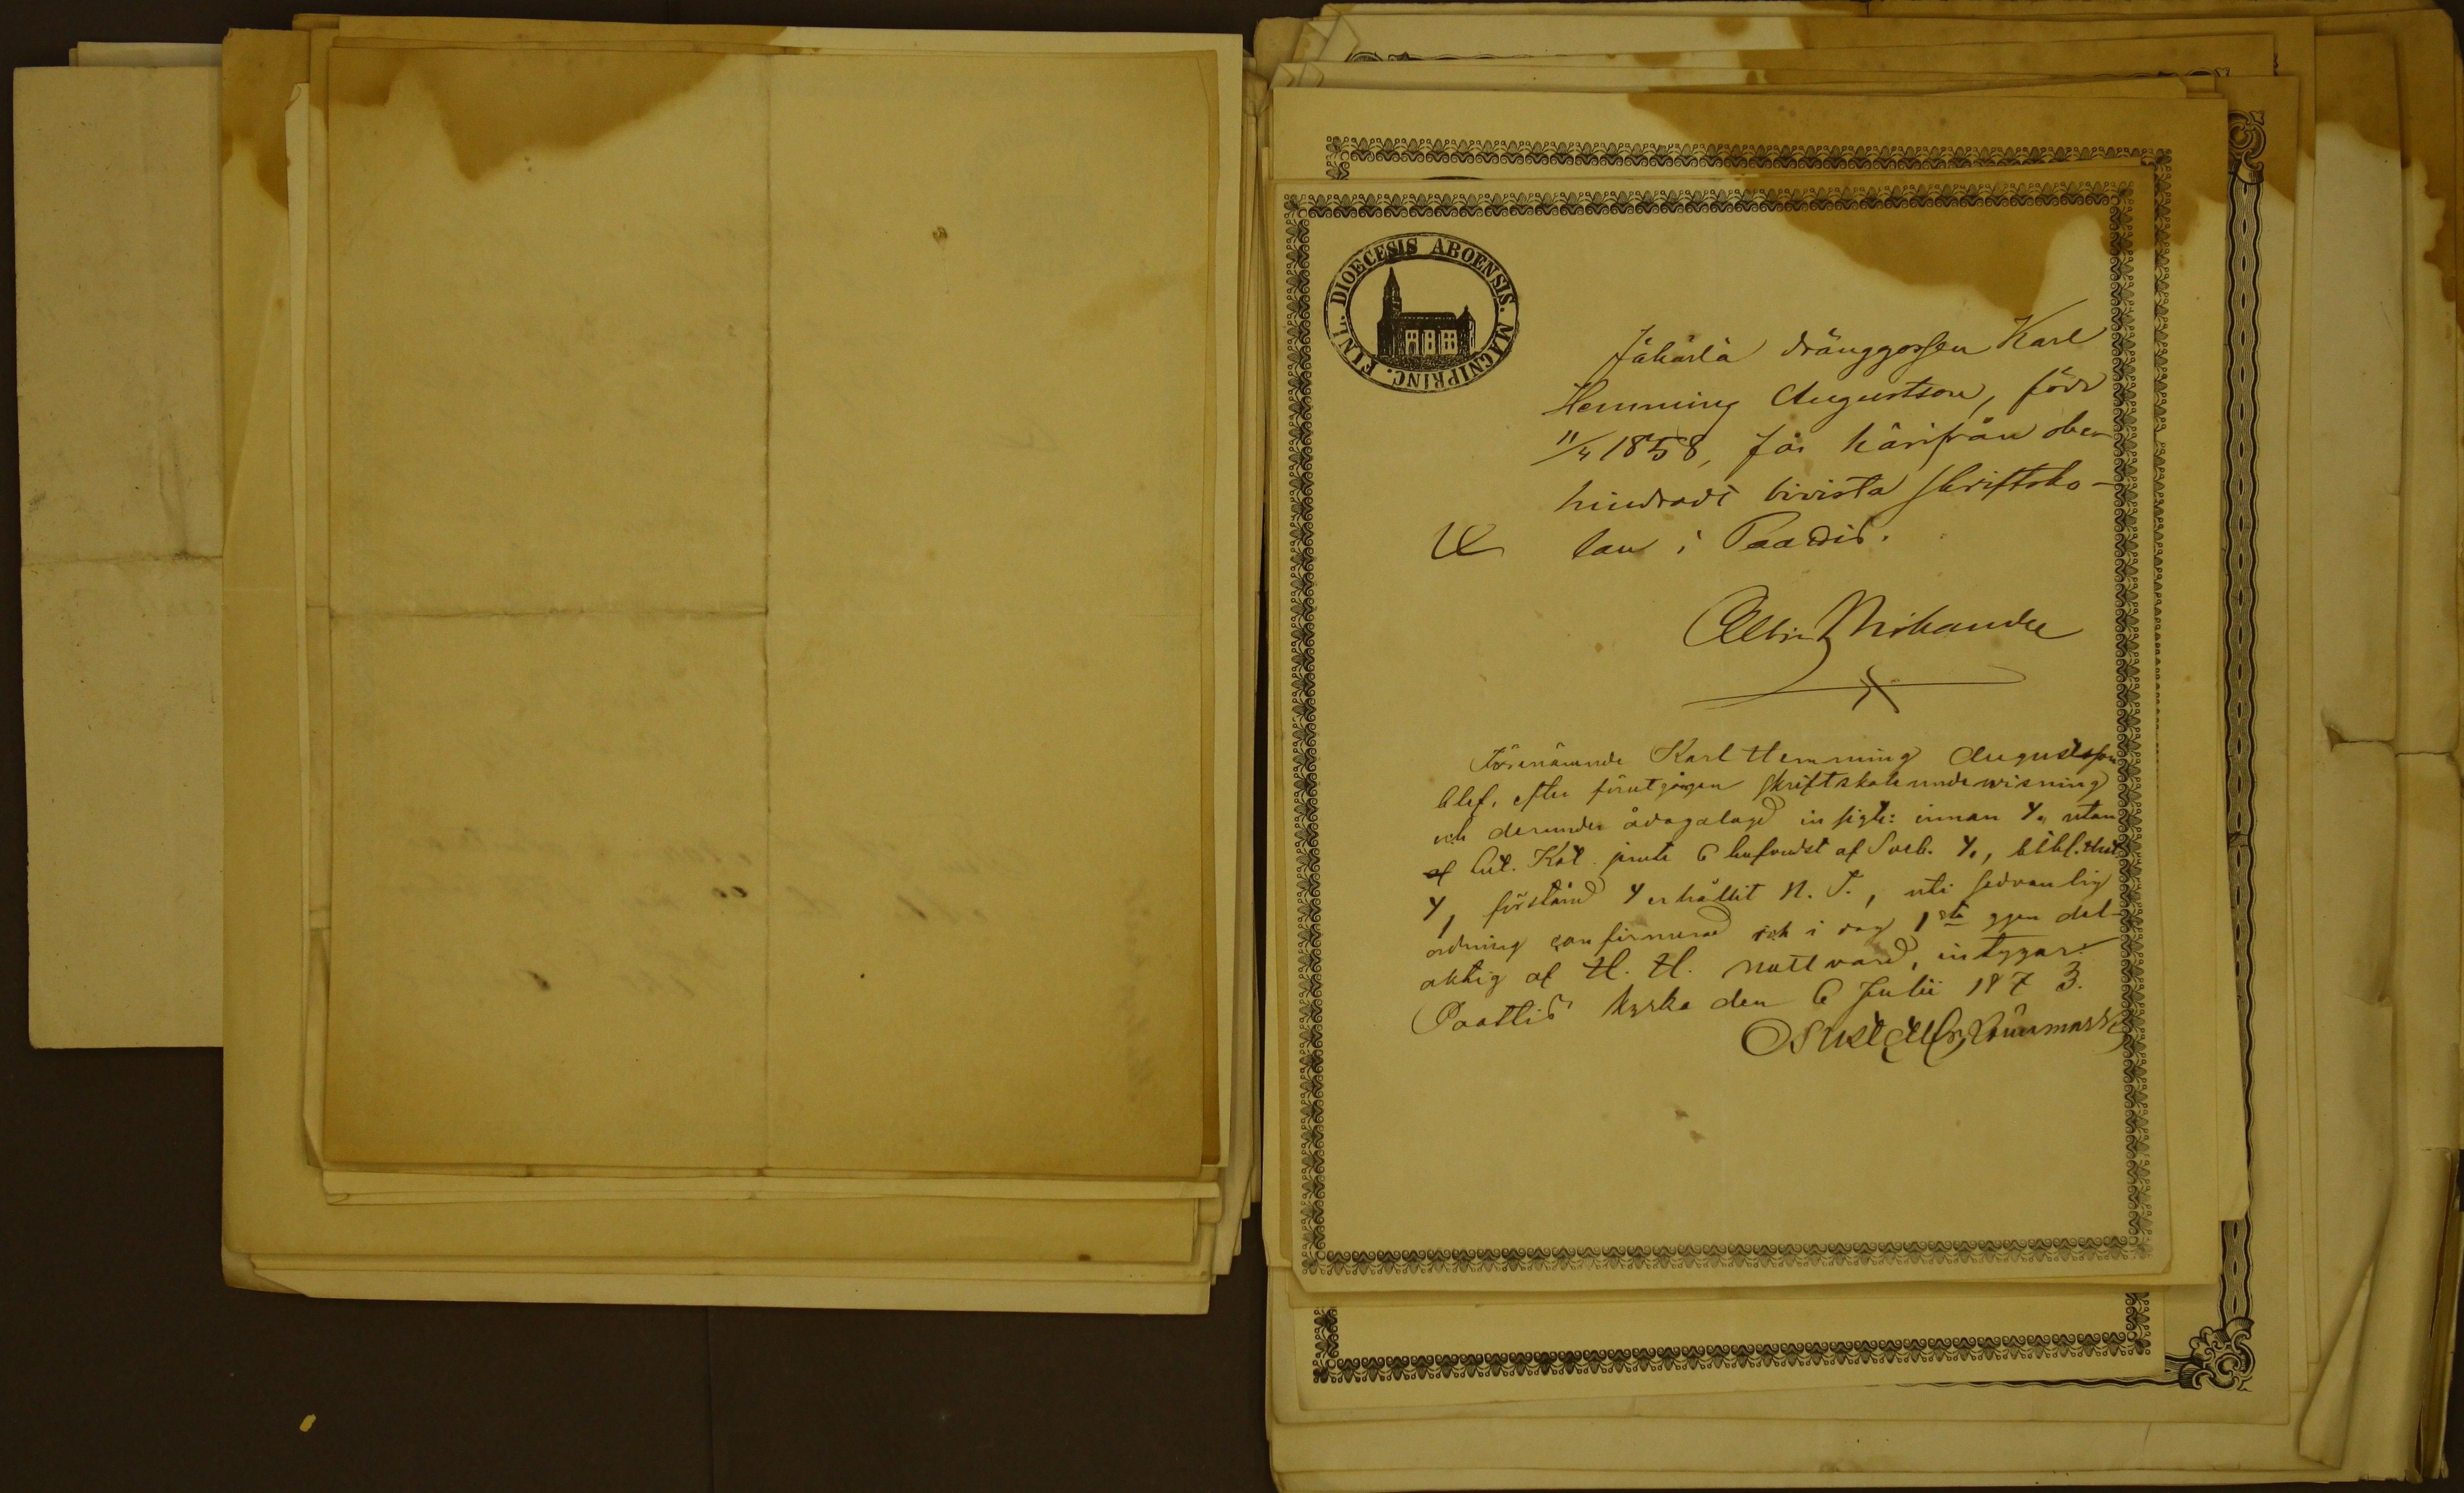 FINL. DIOECESIS ABOENSIS. MAGNIPRINC.
Jäkärlä dränggossen Karl
Hemming Augustson, född
11/4 1858, får härifrån obe-
hindradt bivista skriftsko-
lan i Paadis.
Albin
Förenämnde Karl Hemming Augustsson
blef, efter förutgången skriftskoleundervisning
och derunder ådagalagd insigt: innan Y., utan
af Lut. Kat. jemte 6 hufvudst af Sveb. Y., bibl. hist.
Y, förstånd Y erhållit N. T., uti sedvanlig
ordning confirmerad och i dag 1sta ggen del-
aktig af H. H. nattvard, intygar.
Paattis kyrka den 6 Julii 1873.